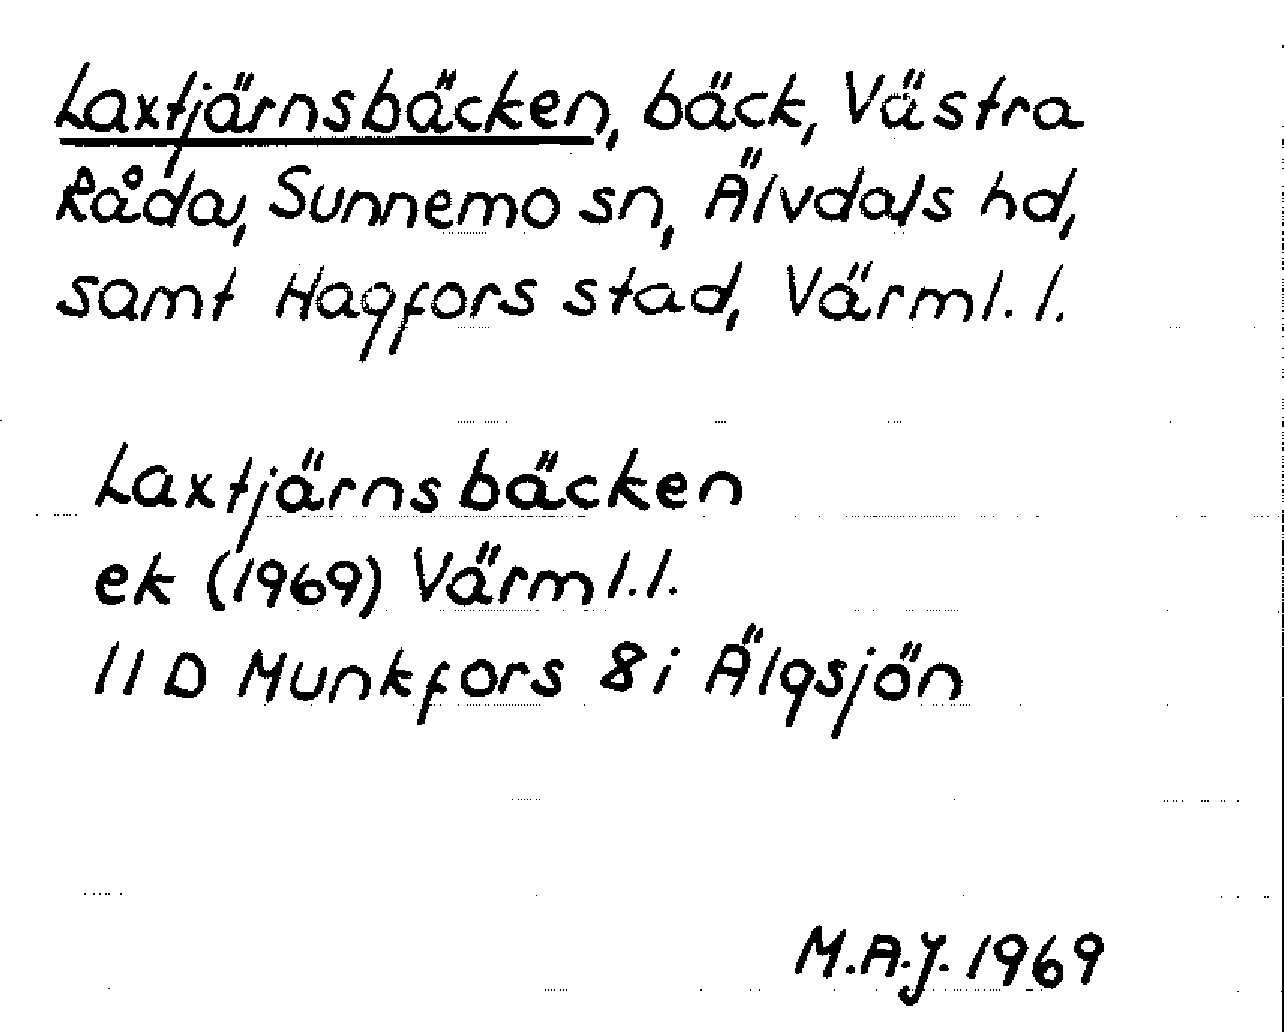 Laxtjärnsbäcken, bäck, Västra
Råda, Sunnemo sn, Älvdals hd,
samt Hagfors stad, Värml. l.
Laxtjärnsbäcken
ek (1969) Värml.l.
11 D Munkfors 8i Älgsjön
M.A.J. 1969